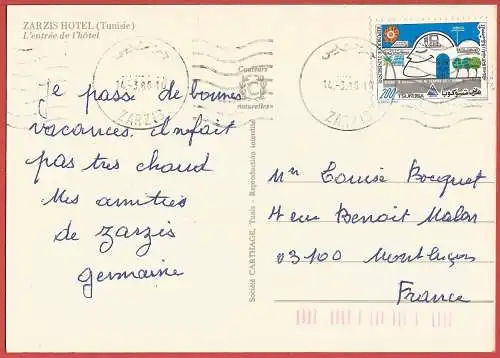 ZARZIS HOTEL (Tunisie)
L'entrée de l'hôtel
جرجيس
14-3.86 10
ZARZIS
Couleurs
naturelles
14-3.86 10
ZARZIS
200
TSUKUBA
Je passe de bonnes
vacances. il nfait
pas tres chaud
Mes amities
de Zarzis
Germaine
Société CARTHAGE, Tunis - Reproduction interdite
Mr Louise Bocquet
4 rue Benoit Malon
03100 Montluçon
France